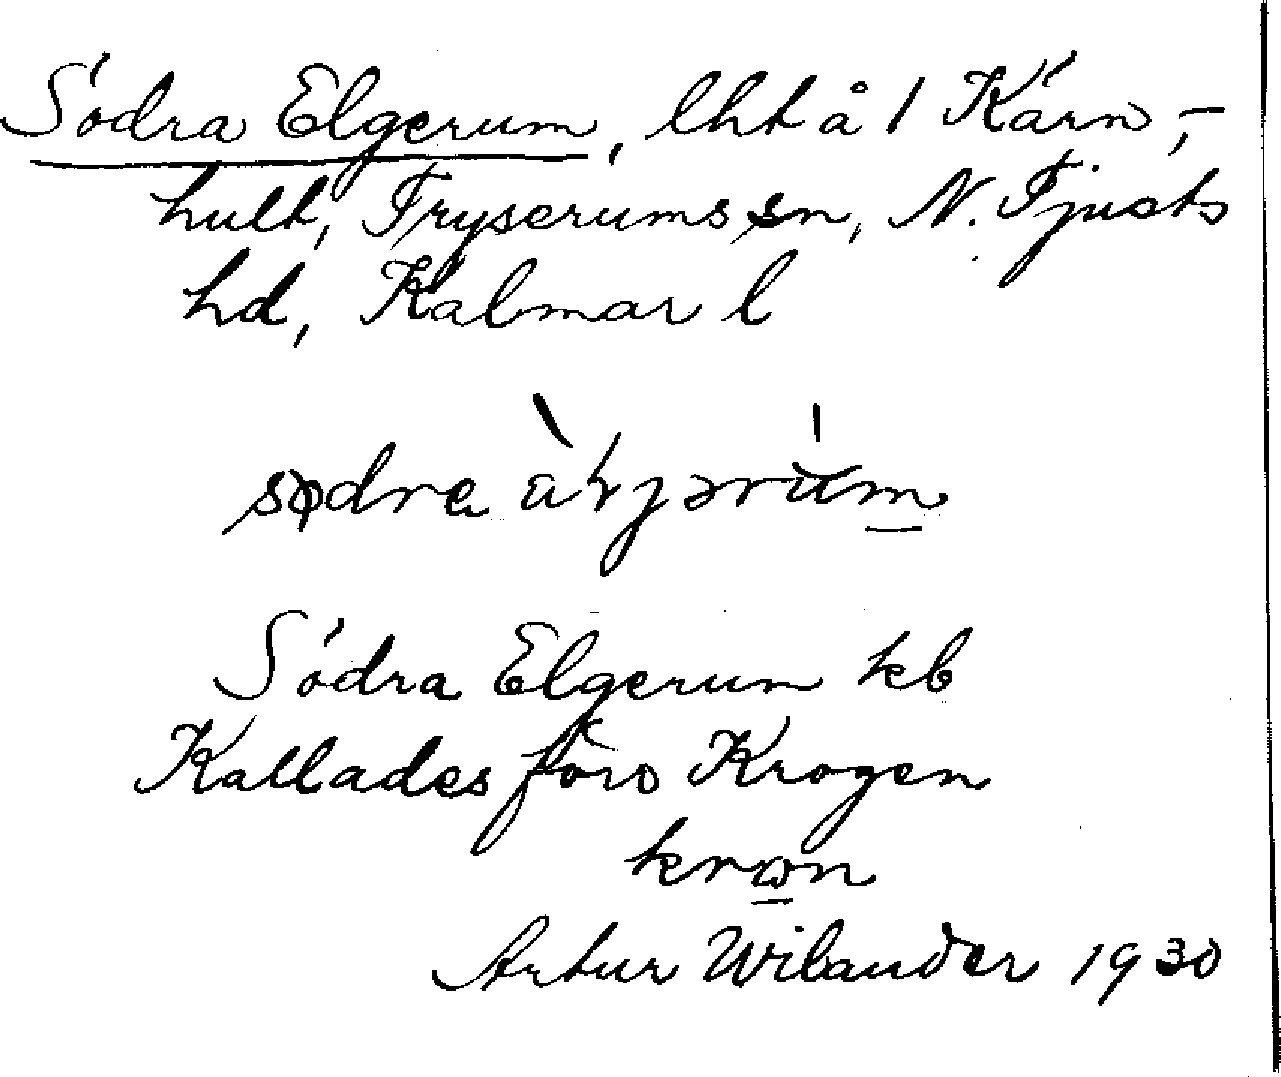 Södra Elgerum, lht å 1 Kärn-
hult, Tryserums sn, N. Tjusts
hd, Kalmar l
Södra Elgerum kb
Kallades förs Krogen
Artur Wilander 1930